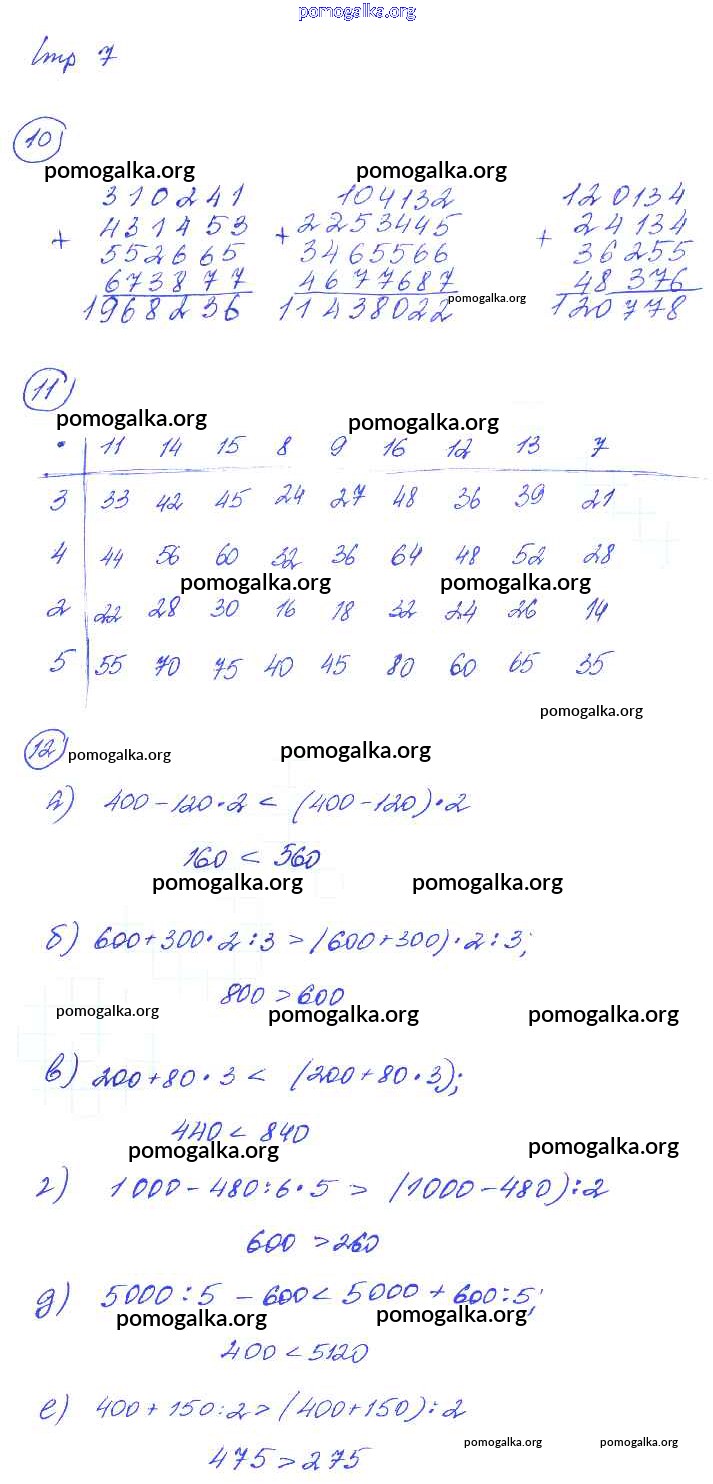 pomogalka.org
Стр 7
10)
pomogalka.org pomogalka.org
310241 104132 120134
+ 431453 + 2253445 + 24134
552665 3465566 36255
673877 4677687 48376
pomogalka.org
1968236 11438022 120778
11)
pomogalka.org pomogalka.org
· 11 14 15 8 9 16 12 13 7
3 33 42 45 24 27 48 36 39 21
4 44 56 60 32 36 64 48 52 28
pomogalka.org pomogalka.org
2 22 28 30 16 18 32 24 26 14
5 55 70 75 40 45 80 60 65 35
pomogalka.org
12) pomogalka.org pomogalka.org
а) 400 - 120 · 2 < (400 - 120) · 2
160 < 560
pomogalka.org pomogalka.org
б) 600 + 300 · 2 : 3 > (600 + 300) · 2 : 3;
800 > 600
pomogalka.org pomogalka.org pomogalka.org
в) 200 + 80 · 3 < (200 + 80 · 3);
440 < 840
pomogalka.org pomogalka.org
г) 1000 - 480 : 6 · 5 > (1000 - 480) : 2
600 > 260
д) 5000 : 5 - 600 < 5000 + 600 : 5;
pomogalka.org pomogalka.org
400 < 5120
е) 400 + 150 : 2 > (400 + 150) : 2
475 > 275
pomogalka.org pomogalka.org